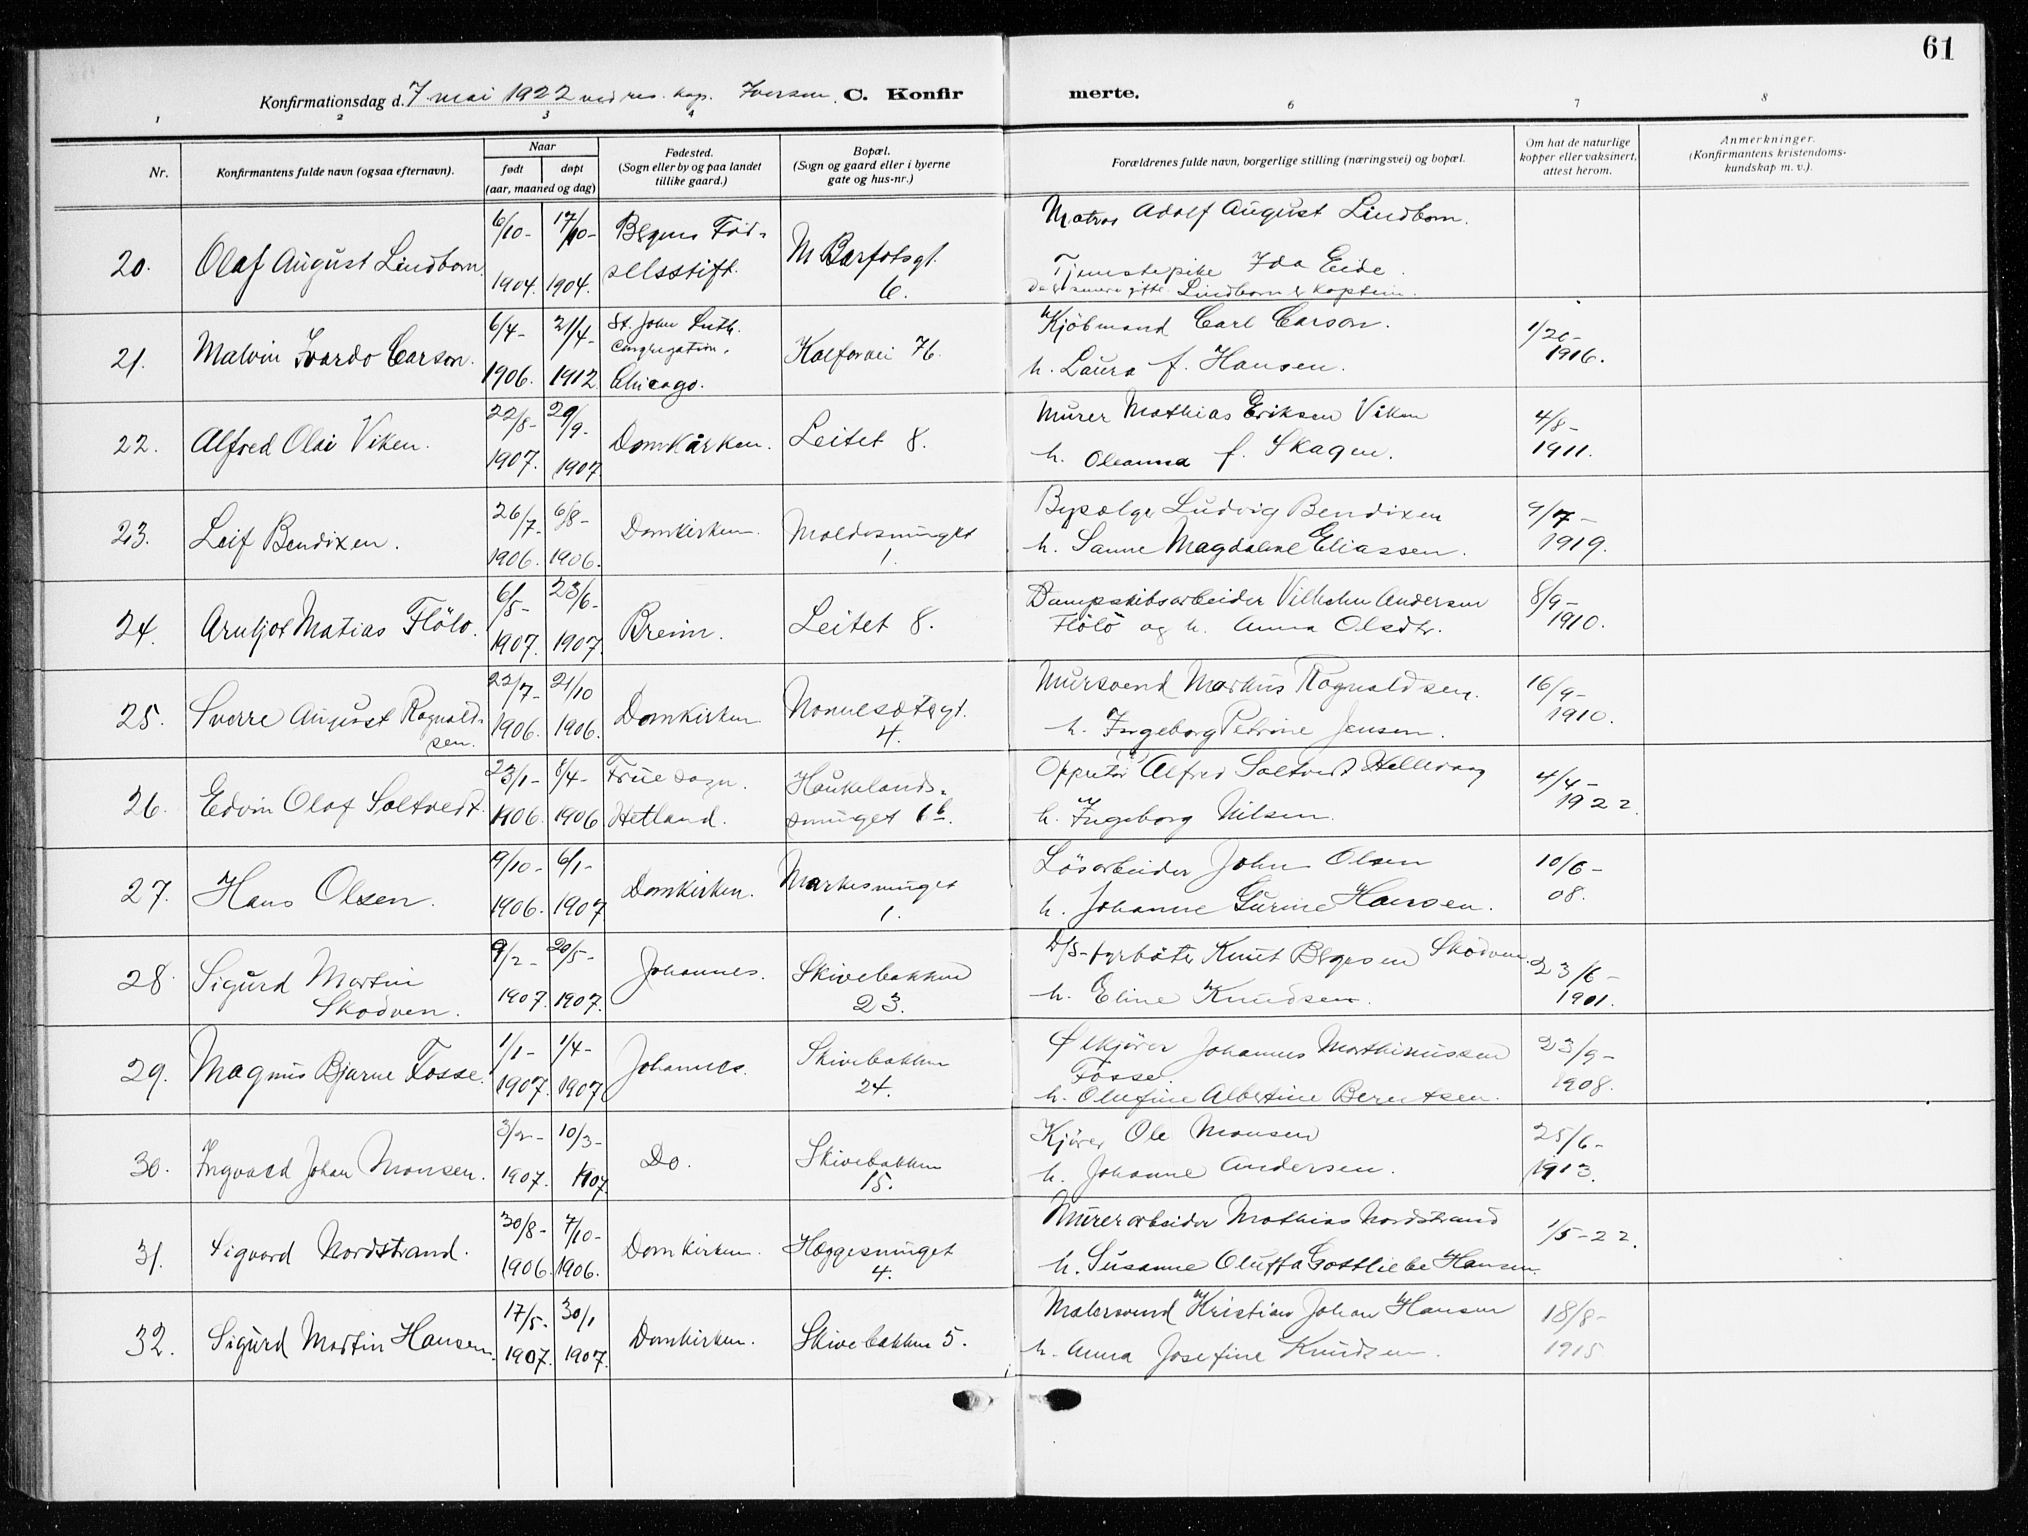 61
Konfirmationsdag d. 7 mai 1922 ved res. kap. Iversen. C. Konfir merte.
1 2 3 4 6 7 8
Nr.
Konfirmantens fulde navn (ogsaa efternavn).
Naar
født døpt
(aar, maaned og dag)
Fødested.
(Sogn eller by og paa landet
tillike gaard.)
Bopæl.
(Sogn og gaard eller i byerne
gate og hus-nr.)
Forældrenes fulde navn, borgerlige stilling (næringsvei) og bopæl.
Om hat de naturlige
kopper eller vaksinert,
attest herom.
Anmerkninger.
(Konfirmantens kristendoms-
kundskap m. v.).
20. Olaf August Lindbom. 6/10- 1904. 17/10- 1904. Bergens Fød-
selsstift. M Barfotsgt.
6. Matros Adolf August Lindbom.
Tjenestepike Ida Eide.
21. Malvin Ivardo Carson. 6/4- 1906. 21/4- 1912 St. John Luth.
Congregation,
Chicago. Kalfarvei 76. Kjöbmand Carl Carson.
h. Laura f. Hansen. 1/20-
1916.
22. Alfred Olai Viken. 22/8- 1907. 29/9- 1907 Domkirken. Leitet 8. Murer Mathias Eriksen Viken
h. Oleanna f. Skagen. 4/8-
1911.
23. Leif Bendixen. 26/7- 1906. 6/8- 1906. Domkirken. Moldesmuget
1. Bypælge Ludvig Bendixen
h. Sanne Magdalene Eliassen. 9/7-
1919.
24. Arntjot Matias Flölo. 6/5- 1907. 23/6- 1907. Breim. Leitet 8. Dampskibsarbeider Vilhelm Andersen
Flölö og h. Anna Olsdtr. 8/9-
1910.
25. Sverre August Ragnald-
sen. 22/7- 1906. 21/10 1906. Domkirken Nonnesætergt.
4. Mursvend Markus Ragnaldsen.
h. Ingeborg Petrine Jensen. 16/9-
1910.
26. Edvin Olaf Saltvedt. 23/1- 1906. 8/4- 1906 Frue sogn.
Hetland. Haukelands-
smuget 6b. Alfred Saltvedt Hellevaag
h. Ingeborg Nilsen. 4/4-
1922.
27. Hans Olsen. 9/10- 1906. 6/1- 1907 Domkirken. Markesmuget
1. Lösarbeider John Olsen
h. Johanne Gurine Hansen. 10/6-
08.
28. Sigurd Martin
Skodven. 9/2- 1907. 20/5- 1907. Johannes. Skivebakken
23. D/S-fyrböter Knut Børgesen Skodven.
h. Eline Knudsen. 23/6-
1901.
29. Magnus Bjarne Fosse. 1/1- 1907. 1/4- 1907 Johannes. Skivebakken
24. Ølkjörer Johannes Mathinussen
Fosse.
h. Olufine Albertine Berentsen. 23/9-
1908.
30. Ingvald Johan Monsen. 3/2- 1907. 10/3- 1907. Do. Skivebakken
15. Kjörer Ole Monsen
h. Johanne Andersen. 25/6-
1913.
31. Sigvard Nordstrand. 30/8- 1906. 7/10- 1906. Domkirken. Hæggesmuget
4. Murerarbeider Mathias Nordstrand
h. Susanne Oluffa Gottliebe Hansen. 1/5-22.
32. Sigurd Martin Hansen. 17/5- 1907. 30/1 1907. Domkirken. Skivebakken 5. Malersvend Kristian Johan Hansen
h. Anna Josefine Knudsen. 18/8-
1915